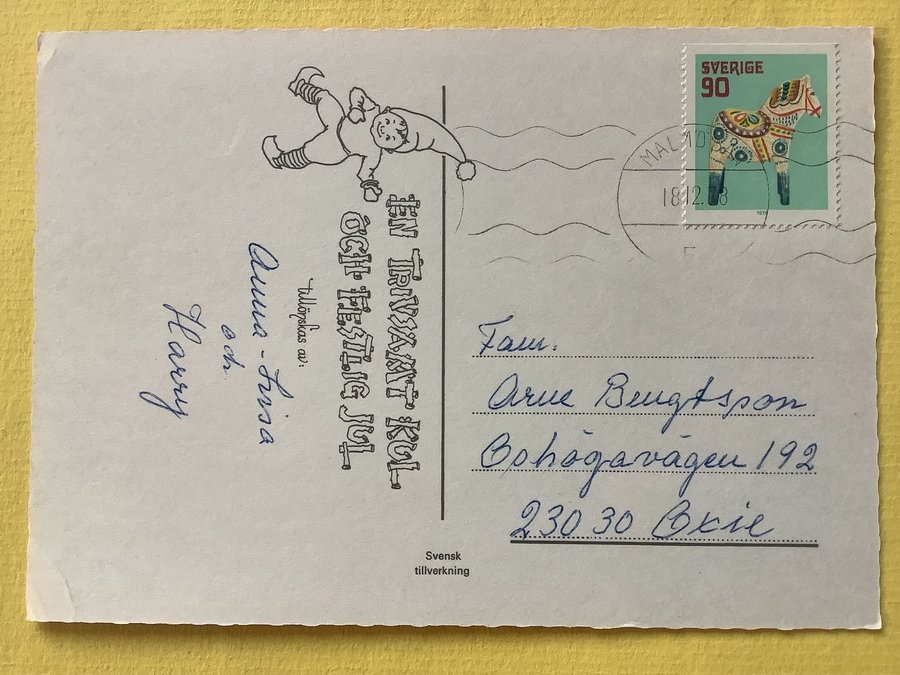 EN TRIVSAMT KUL
OCH FESTLIG JUL
tillönskas av:
Anna-Lisa
och
Harry
SVERIGE
90
1978
MALMÖ
18.12.78
F
Fam.
Arne Bengtsson
Bohögavägen 192
230 30 Oxie
Svensk
tillverkning